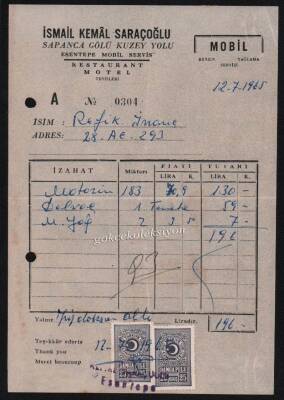 İSMAİL KEMÂL SARAÇOĞLU
SAPANCA GÖLÜ KUZEY YOLU
ESENTEPE MOBİL SERVİS
RESTAURANT
MOTEL
TESİSLERİ
MOBİL
BENZİN YAĞLAMA
SERVİSİ
12-7-1965
A № 0304
İSİM : Refik İnanç
ADRES: 28. AE. 293
İZAHAT Miktarı FİATI TUTARI
LİRA K. LİRA K.
Motorin 183 130 -
1 59 -
M. Yağ 2 3 5 7 -
196
gokcekoleksiyon
Yalnız Liradır. 196.-
Teşekkür ederiz
Thank you
Merci beaucoup
12-7-1965
Esentepe